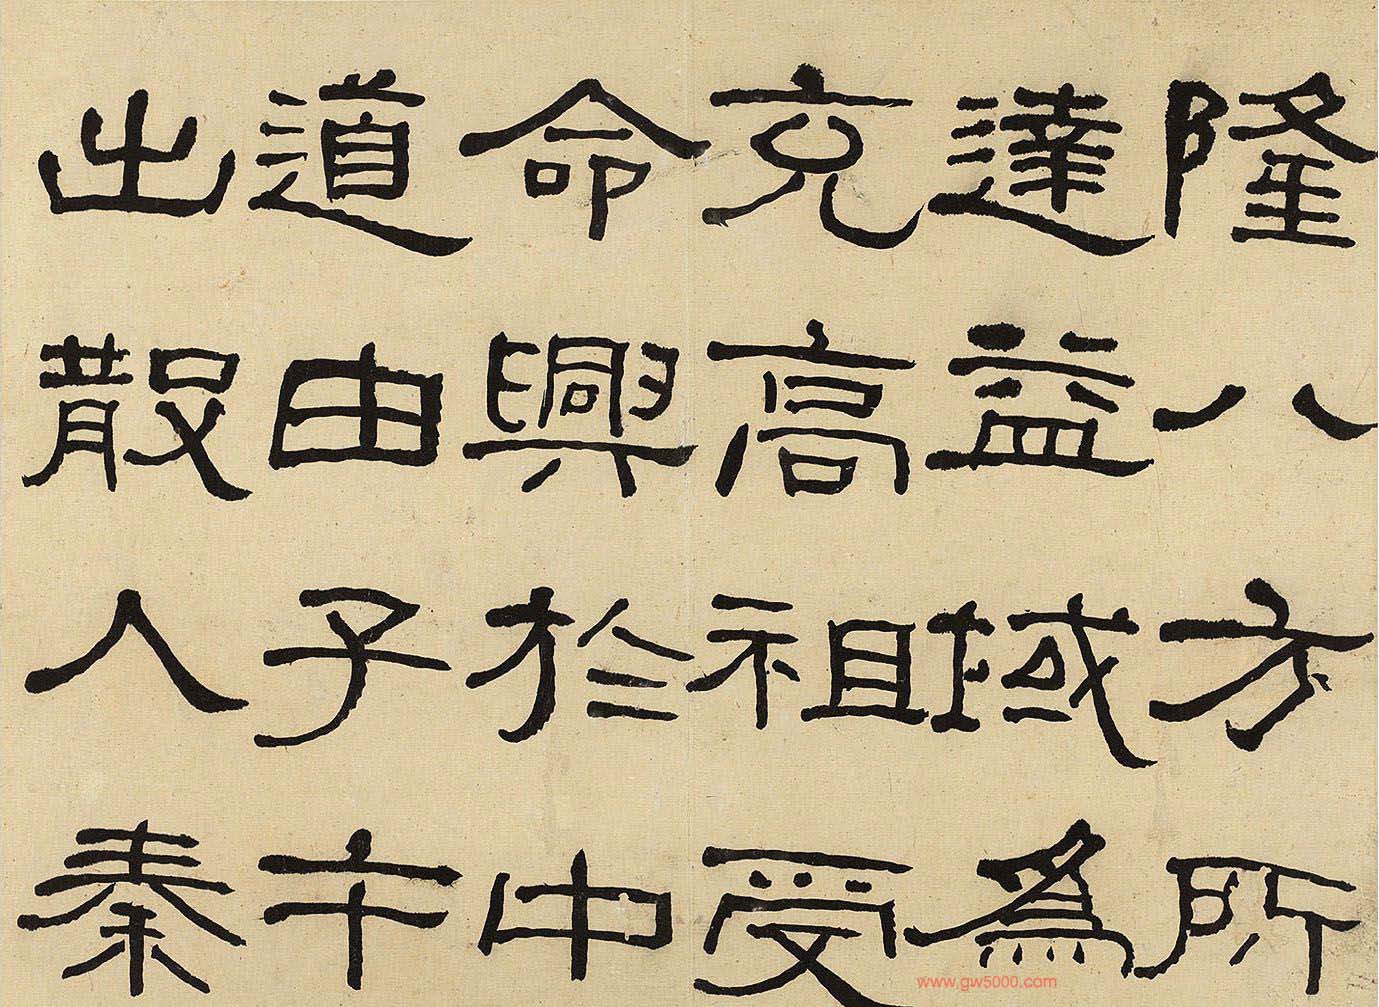 隆八方所
達益域為
充高祖受
命興於中
道由子午
出散入秦
www.gw5000.com